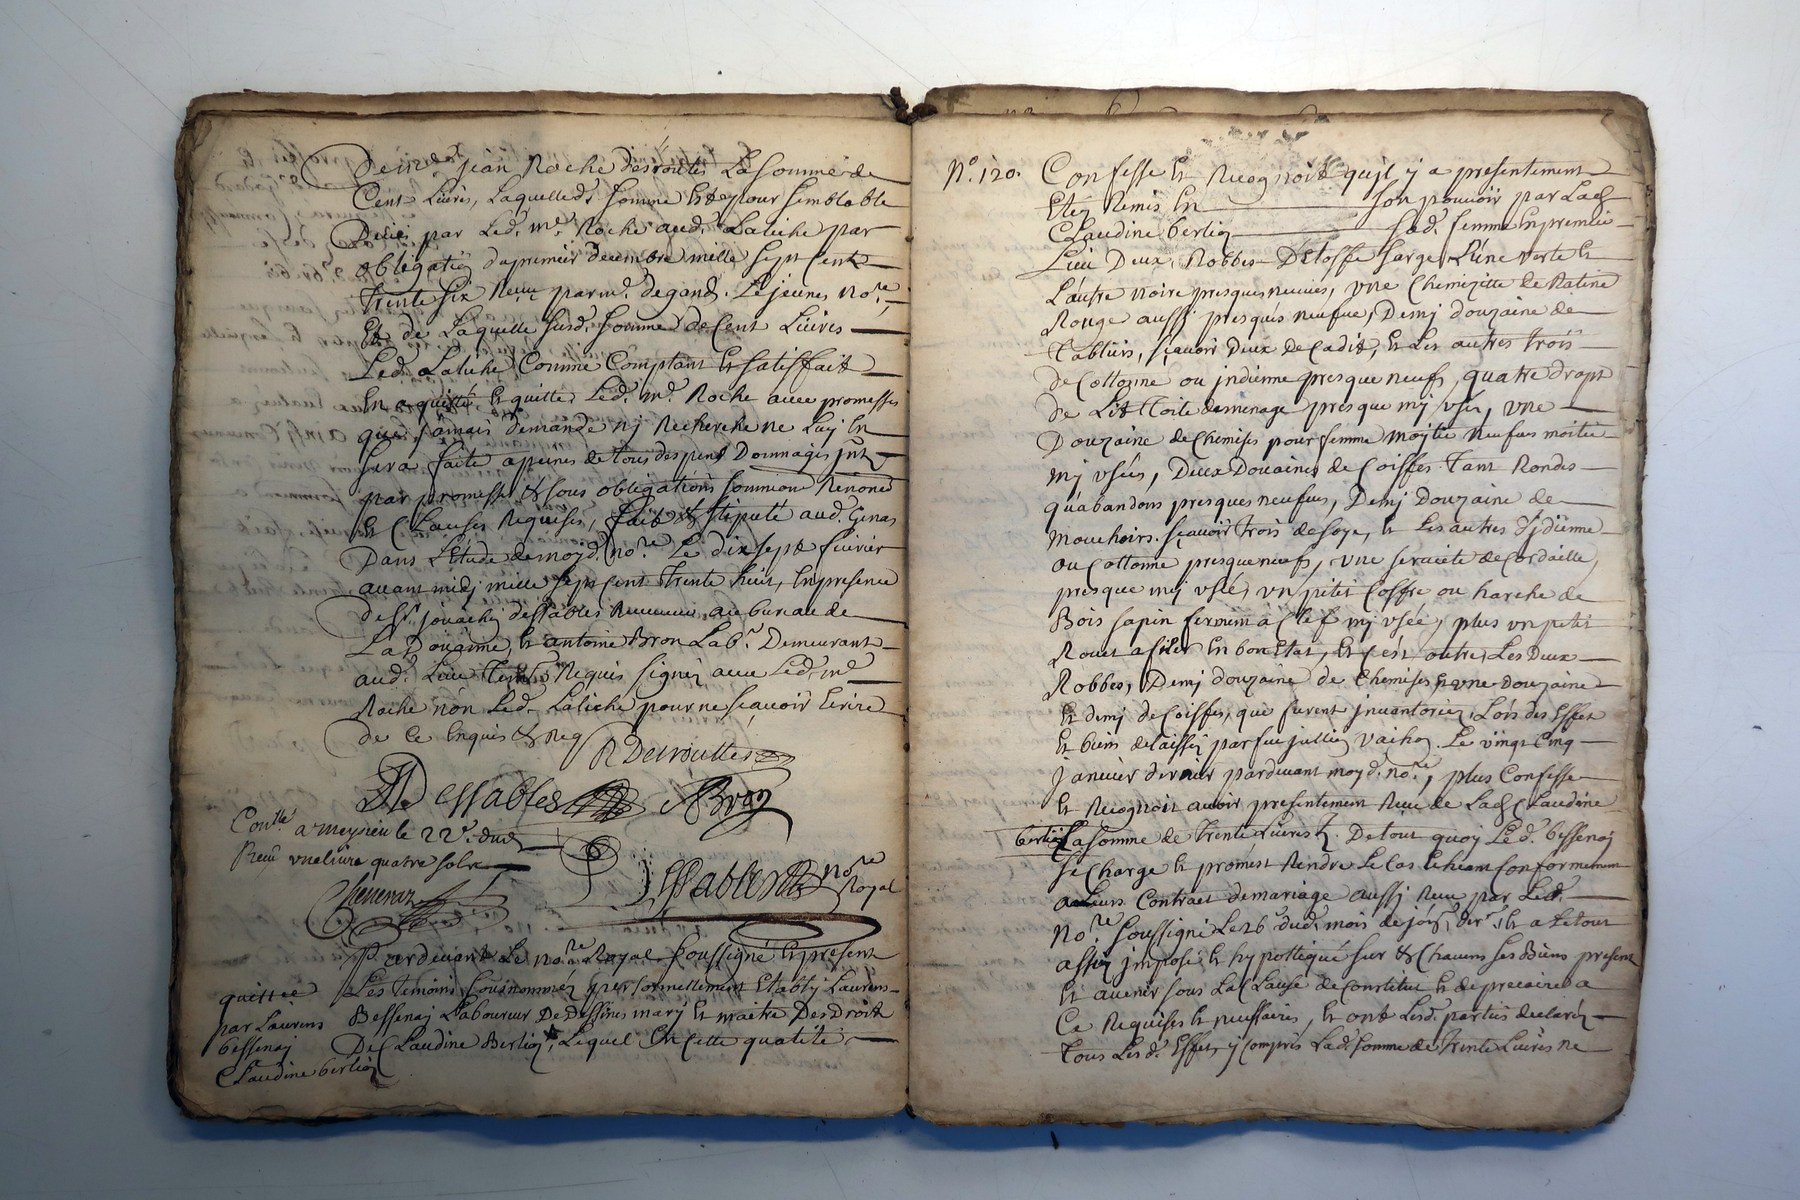 De me Jean Roche desroutes La somme de
Cent Livres, Laquelle d. somme Est pour semblable
Deüe par Led. me. Roche aud. Latiche par
obligatiõn du premier decembre mille sept cent
trente six Receüe par me. degand. Le jeune, Nore,
Et de Laquelle susd. somme de Cent Livres
Led. Latiche Comme Comptant Et satisffait
En a quitté Et quitte Led. me. Roche avec promesses
que jamais demande ny Recherche ne Luy En
sera faite a peines de tous despens Dommages jnts
par promesses & sous obligations soumion Renons
Et Clauses Requises, fait & stipulé aud. Genas
Dans L'Etude de moyd. Nore. Le dix sept fevrier
avant midy mille sept cent trente huit, En presence
de sr. jouachin dessables Receveur au bureau de
La Doüanne, Et antoine Bron Labr. Demeurant
aud. Lieu Tesm. Requis signez avec Led. me
Roche non Led. Latiche pour ne sçavoir Ecrire
de Ce Enquis & Req
R Desrouttes
JDessables ABron
Conlle a meyzieu le 22e. dud
Receu une livre quatre sols
Dessables Nore Royal
Pardevant Le Nore Royal soussigné Et present
Les temoins sousnommez personnellement Etably Laurens
Bessenay Laboureur De Dessines mary Et maitre Des Droits
De Claudine Berlioz, Lequel En cette qualité
quittee
par Laurens
bessenay
Claudine berlioz
No. 120.
Confesse Et Recognoit quil y a presentement
Eté Remis En son pouvoir par Lad
Claudine berlioz sad. femme En premier
Lieu Deux Robbes D'Etoffe sarge, L'une verte Et
L'autre noire presques neuves, une Chemizette de Ratine
Rouge aussy presques neufve, Demj douzaine de
Tabliers, sçavoir Deux de Cadis, Et Les autres trois
de Cottonne ou jndienne presque neufs, quatre draps
de Lit toile de menage presque my usés, une
Douzaine de Chemises pour femme moytié neufves moitié
my usées, Deux Douzaines de Coiffes tant Rondes
qu'abandons presques neufves, Demj Douzaine de
mouchoirs. sçavoir trois de soye, Et Les autres D'jdienne
ou Cottonne presque neufs, une serviete de Cordaille,
presque my usée, un petit Coffre ou harche de
Bois sapin fermen a Clef my usée, plus un petit
Rouet a filer En bon Etat, Et C'est outre Les Deux
Robbes, Demj douzaine de Chemises Et une Douzaine
Et demj de Coiffes, que furent jnventoriez Lors des Effets
Et biens delaissez par feu jullien vaihoz. Le vingt cinq
janvier dernier pardevant moyd. Nore, plus Confesse
Et Recognoit avoir presentement Receu de Lad Claudine
berlioz La somme de trente Livres. De tout quoy Led. bessenay
se Charge Et promest Rendre Le Cas Echeant Conformement
a Leurs Contract de mariage aussy Receu par Led.
Nore. soussigné Le 26e dud. mois de janv. der. Et a Le tout
assez jmposé Et hypottequé sur & Chacuns ses Biens present
Et avenir sous La Clause de Constitut Et de precaire a
Ce Requises Et necessaires, Et ont Lesd. parties declaréz
tous Lesd. Effets y Compris Lad. somme de trente Livres ne